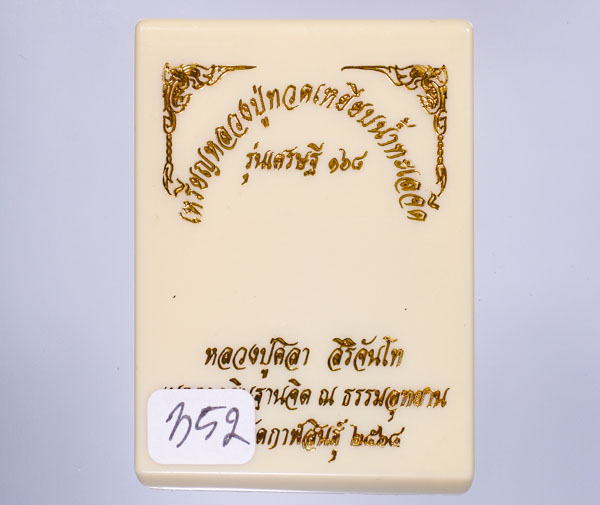 เหรียญหลวงปู่ทวดเหยียบน้ำทะเลจืด
รุ่นเศรษฐี ๑๖๘
หลวงปู่ศิลา สิริจันโท
ณ ธรรมอุทยาน
กาฬสินธุ์ ๒๕๖๔
352